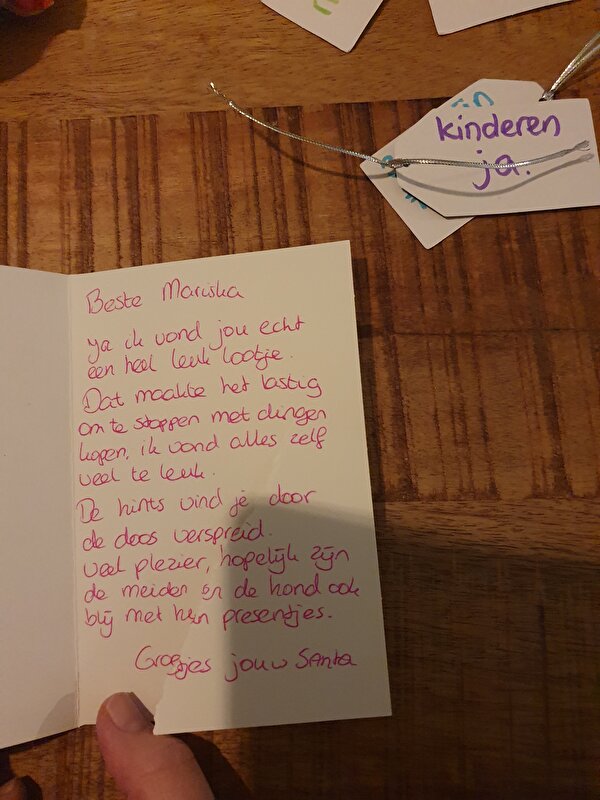 kinderen
ja.
Beste Mariska
Ja ik vond jou echt
een heel leuk lootje.
Dat maakte het lastig
om te stoppen met dingen
kopen, ik vond alles zelf
veel te leuk.
De hints vind je door
de doos verspreid.
Veel plezier, hopelijk zijn
de meiden en de hond ook
blij met hun presentjes.
Groetjes jouw Santa